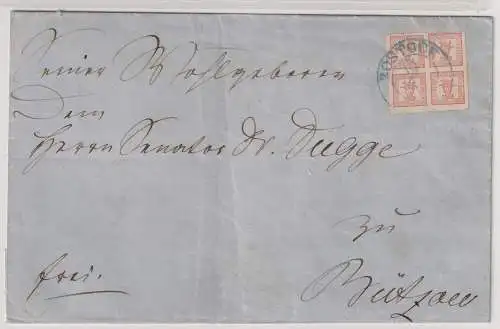 ROSTOCK
Seiner Wohlgeboren
Dem
Herrn Senator Dr. Dugge
zu
frei.
Bützow